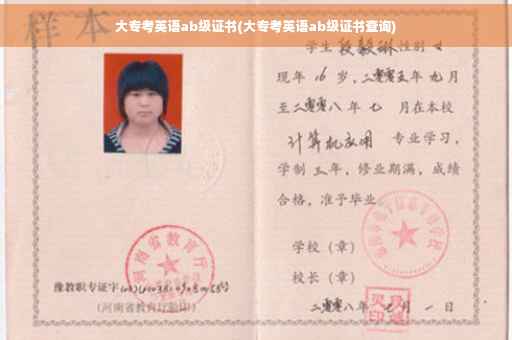 大专考英语ab级证书(大专考英语ab级证书查询)
样本
学生 段毅琳 性别 女
现年 16 岁，二零零五年 九 月
至二零零八年 七 月在本校
计算机应用 专业学习，
学制 三 年，修业期满，成绩
合格，准予毕业。
学校（章）
校长（章）
二零零八年 七 月 一 日
河南省教育厅
豫教职专证字
（河南省教育厅验印）